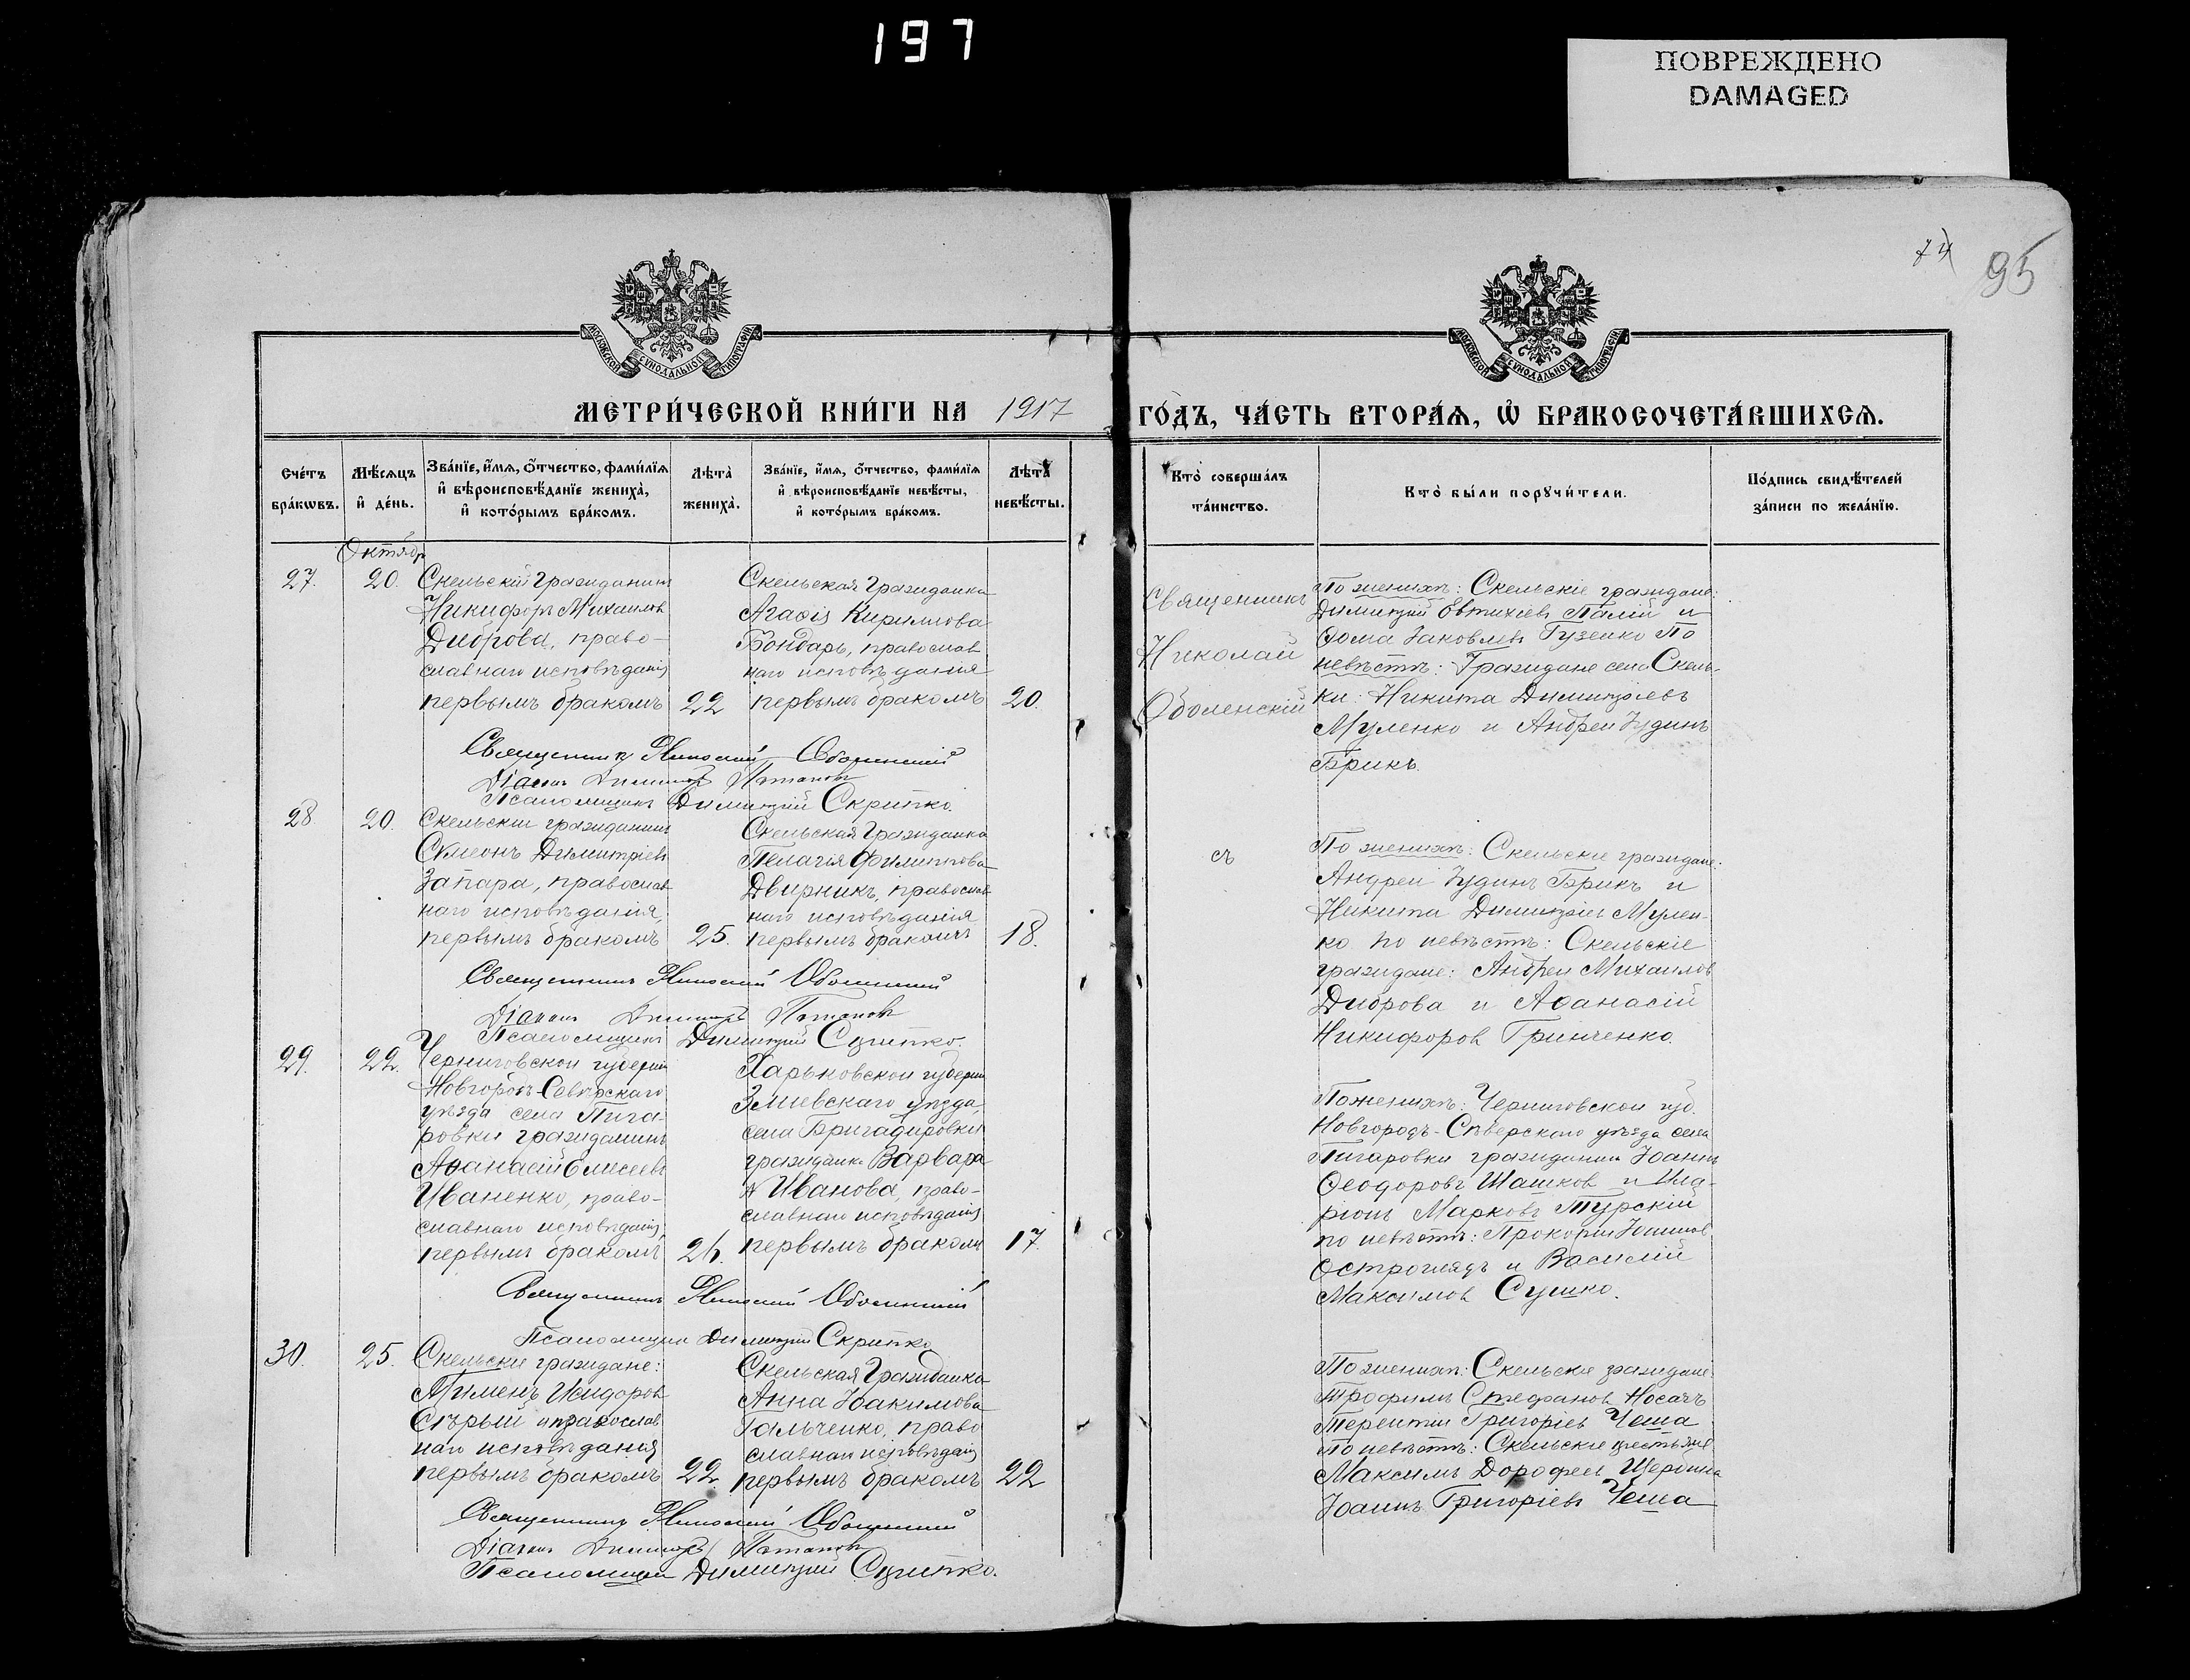 197
ПОВРЕЖДЕНО
DAMAGED
74
95
МОСКОВСКОЙ СѴНОДАЛЬНОЙ ТИПОГРАФІИ
МОСКОВСКОЙ СѴНОДАЛЬНОЙ ТИПОГРАФІИ
МЕТРИ́ЧЕСКОЙ КНИ́ГИ НА 1917 ГО́ДЪ, ЧА́СТЬ ВТОРА́Ѧ, Ѽ БРАКОСОЧЕТА́ВШИХСѦ.
Сче́тъ
бра́кѡвъ.
Мѣ́сѧцъ
и҆ де́нь.
Зва́нїе, и҆́мѧ, ѻ҆́тчество, фами́лїѧ
и҆ вѣроисповѣ́данїе жениха̀,
и҆ кото́рымъ бра́комъ.
Лѣта̀
жениха̀.
Зва́нїе, и҆́мѧ, ѻ҆́тчество, фами́лїѧ
и҆ вѣроисповѣ́данїе невѣ́сты,
и҆ кото́рымъ бра́комъ.
Лѣта̀
невѣ́сты.
Кто̀ соверша́лъ
та́инство.
Кто̀ бы́ли порꙋчи́тели.
По́дпись свидѣ́телей
за́писи по жела́нїю.
Октябр
27.
20.
Скельскій гражданинъ
Никифоръ Михаилов
Диброва, право-
славнаго исповѣданія
первымъ бракомъ
22
Скельская гражданка
Агаѳія Кириллова
Бондарь, православ
наго исповѣданія
первымъ бракомъ
20.
Священникъ
Николай
Оболенскій
По женихѣ: Скельскіе граждане:
Димитрій Евтихіевъ Палій и
Ѳома Іаковлевъ Гузенко По
невѣстѣ: Граждане села Скель-
ки. Никита Димитріевъ
Муленко и Андрей Іудинъ
Брикъ.
Священникъ Николай Оболенскій
Діаконъ Димитрій Потаповъ
Псаломщикъ Димитрій Скрипко.
28
20.
Скельскій гражданинъ
Сѵмеонъ Димитріевъ
Запара, православ
наго исповѣданія,
первымъ бракомъ
25.
Скельская гражданка
Пелагія Филиппова
Дворникъ, православ
наго исповѣданія
первымъ бракомъ
18.
съ
По женихѣ: Скельскіе граждане:
Андрей Іудинъ Брикъ и
Никита Димитріевъ Мулен-
ко по невѣстѣ: Скельскіе
граждане: Андрей Михаилов
Диброва и Аѳанасій
Никифоров Гринченко.
Священникъ Николай Оболенскій
Діаконъ Димитрій Потаповъ
Псаломщикъ Димитрій Скрипко.
29.
22.
Черниговской губерніи
Новгородъ-Сѣверскаго
уѣзда села Пига-
ровки гражданинъ
Аѳанасій Елисеевъ
Иваненко, право-
славнаго исповѣданія
первымъ бракомъ
26.
Харьковской губерніи
Зміевскаго уѣзда,
села Бригадировки
гражданка Варвара
Иванова, право-
славнаго исповѣданія
первымъ бракомъ
17.
По женихѣ: Черниговской губ.
Новгородъ-Сѣверскаго уѣзда села
Пигаровки гражданин Іоаннъ
Ѳеодоровъ Шашков и Ила-
ріонъ Марковъ Турскій
по невѣстѣ: Прокопій
Остроглядъ и Василій
Максимов Сушко.
Священникъ Николай Оболенскій
Псаломщикъ Димитрій Скрипко
30.
25.
Скельскіе граждане:
Пименъ Исидоров
Сѣрый православ
наго исповѣданія
первымъ бракомъ
22.
Скельская Гражданка
Анна Іоакимова
Гальченко, право
славнаго исповѣданія
первымъ бракомъ
22
По женихѣ: Скельскіе граждане:
Трофимъ Стефанов Носачъ
Терентій Григоріев Чеша
По невѣстѣ: Скельскіе крестьяне
Максимъ Дорофеев Щербина
Іоаннъ Григоріевъ Чеша
Священникъ Николай Оболенскій
Діаконъ Димитрій Потаповъ
Псаломщикъ Димитрій Скрипко.